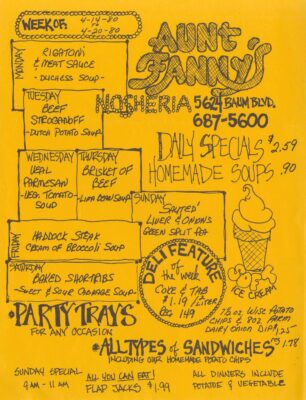 WEEK OF:
4-14-80
to
4-20-80
AUNT
FANNY'S
NOSHERIA
5624 BAUM BLVD.
687-5600
MONDAY
RIGATONI
& MEAT SAUCE
- DUCHESS SOUP -
TUESDAY
BEEF
STROGANOFF
- DUTCH POTATO SOUP -
DAILY SPECIALS $2.59
HOMEMADE SOUPS .90
WEDNESDAY
VEAL
PARMESAN
- VEG. TOMATO -
SOUP
THURSDAY
BRISKET OF
BEEF
- LIMA BEAN SOUP -
SUNDAY
SAUTED'
LIVER & ONIONS
GREEN SPLIT PEA
FRIDAY
HADDOCK STEAK
CREAM OF BROCCOLI SOUP
SATURDAY
BOXED SHORTRIBS
- SWEET & SOUR CABBAGE SOUP -
DELI FEATURE
of the
week
COKE & TAB
$1.19 / LITER
REG. 1.49
ICE CREAM
7½ OZ. WISE POTATO
CHIPS & 8OZ. FARM
DAIRY ONION DIP $1.25
• PARTY TRAYS
FOR ANY OCCASION
• ALL TYPES of SANDWICHES $1.78
INCLUDING OUR HOMEMADE POTATO CHIPS
SUNDAY SPECIAL
9 AM - 11 AM
ALL YOU CAN EAT!
FLAP JACKS $1.99
ALL DINNERS INCLUDE
POTATO & VEGETABLE